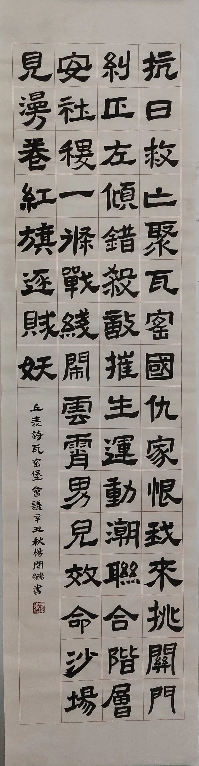 抗日救亡聚瓦窑國仇家恨我來挑關門
糾正左傾錯殺敵摧生運動潮聯合階層
安社稷一條戰綫鬧雲霄男兒效命沙場
見漫卷紅旗逐賊妖
丘詩瓦窑堡會議辛丑秋書